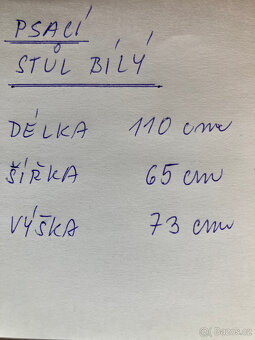 PSACÍ
STŮL BÍLÝ
DÉLKA 110 cm
ŠÍŘKA 65 cm
VÝŠKA 73 cm
Bazos.cz